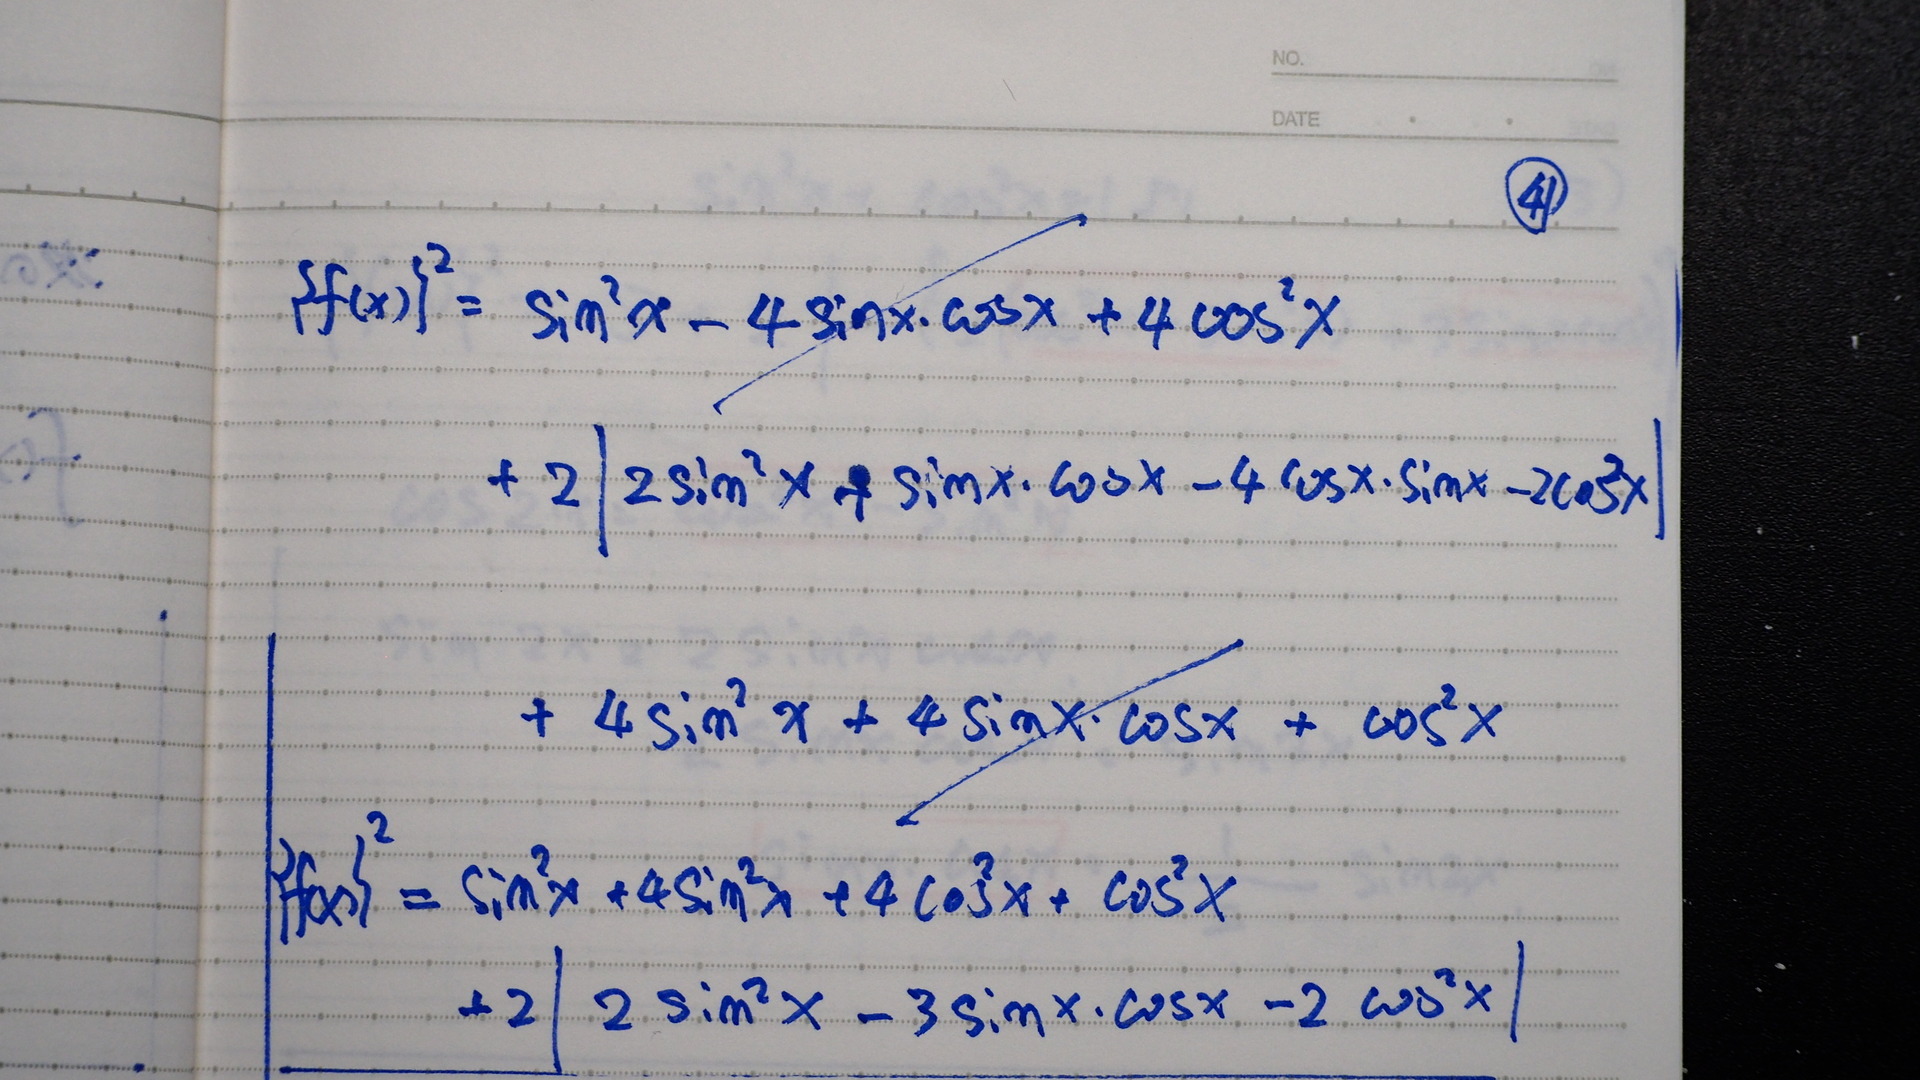 NO.
DATE
④
{f(x)}² = sin²x - 4 sinx·cosx + 4 cos²x
+ 2 | 2 sin²x + sinx·cosx - 4 cosx·sinx - 2cos²x |
+ 4 sin²x + 4 sinx·cosx + cos²x
{f(x)}² = sin²x + 4 sin²x + 4 cos²x + cos²x
+ 2 | 2 sin²x - 3 sinx·cosx - 2 cos²x |